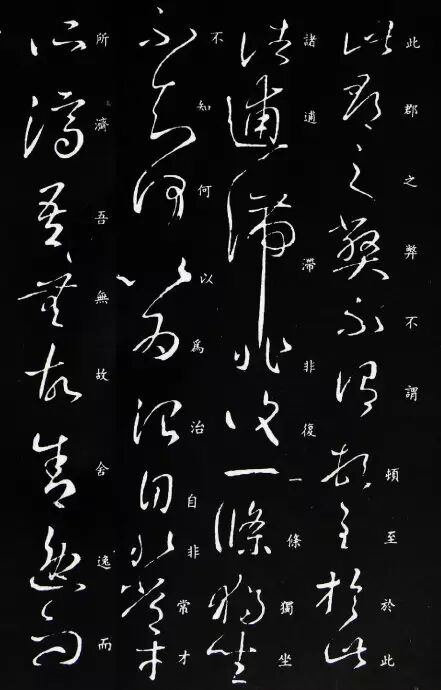 此郡之弊不謂頓至於此
諸逋滯非復一條獨坐
不知何以爲治自非常才
所濟吾無故舍逸而